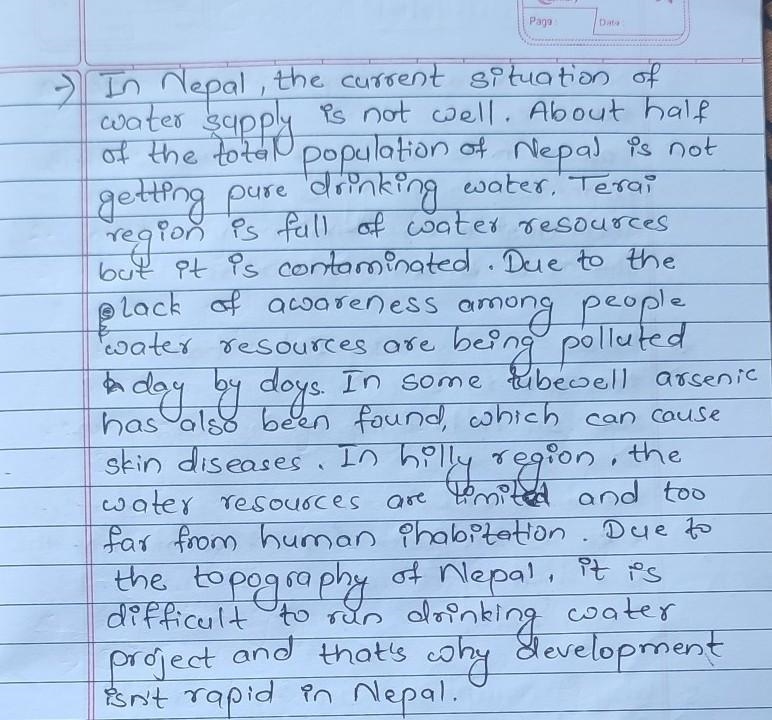 Page: Date:
→ In Nepal, the current situation of
water supply is not well. About half
of the total population of Nepal is not
getting pure drinking water. Terai
region is full of water resources
but it is contaminated. Due to the
lack of awareness among people
water resources are being polluted
day by days. In some tubewell arsenic
has also been found, which can cause
skin diseases. In hilly region, the
water resources are limited and too
far from human ihabitation. Due to
the topography of Nepal, it is
difficult to run drinking water
project and that's why development
isn't rapid in Nepal.